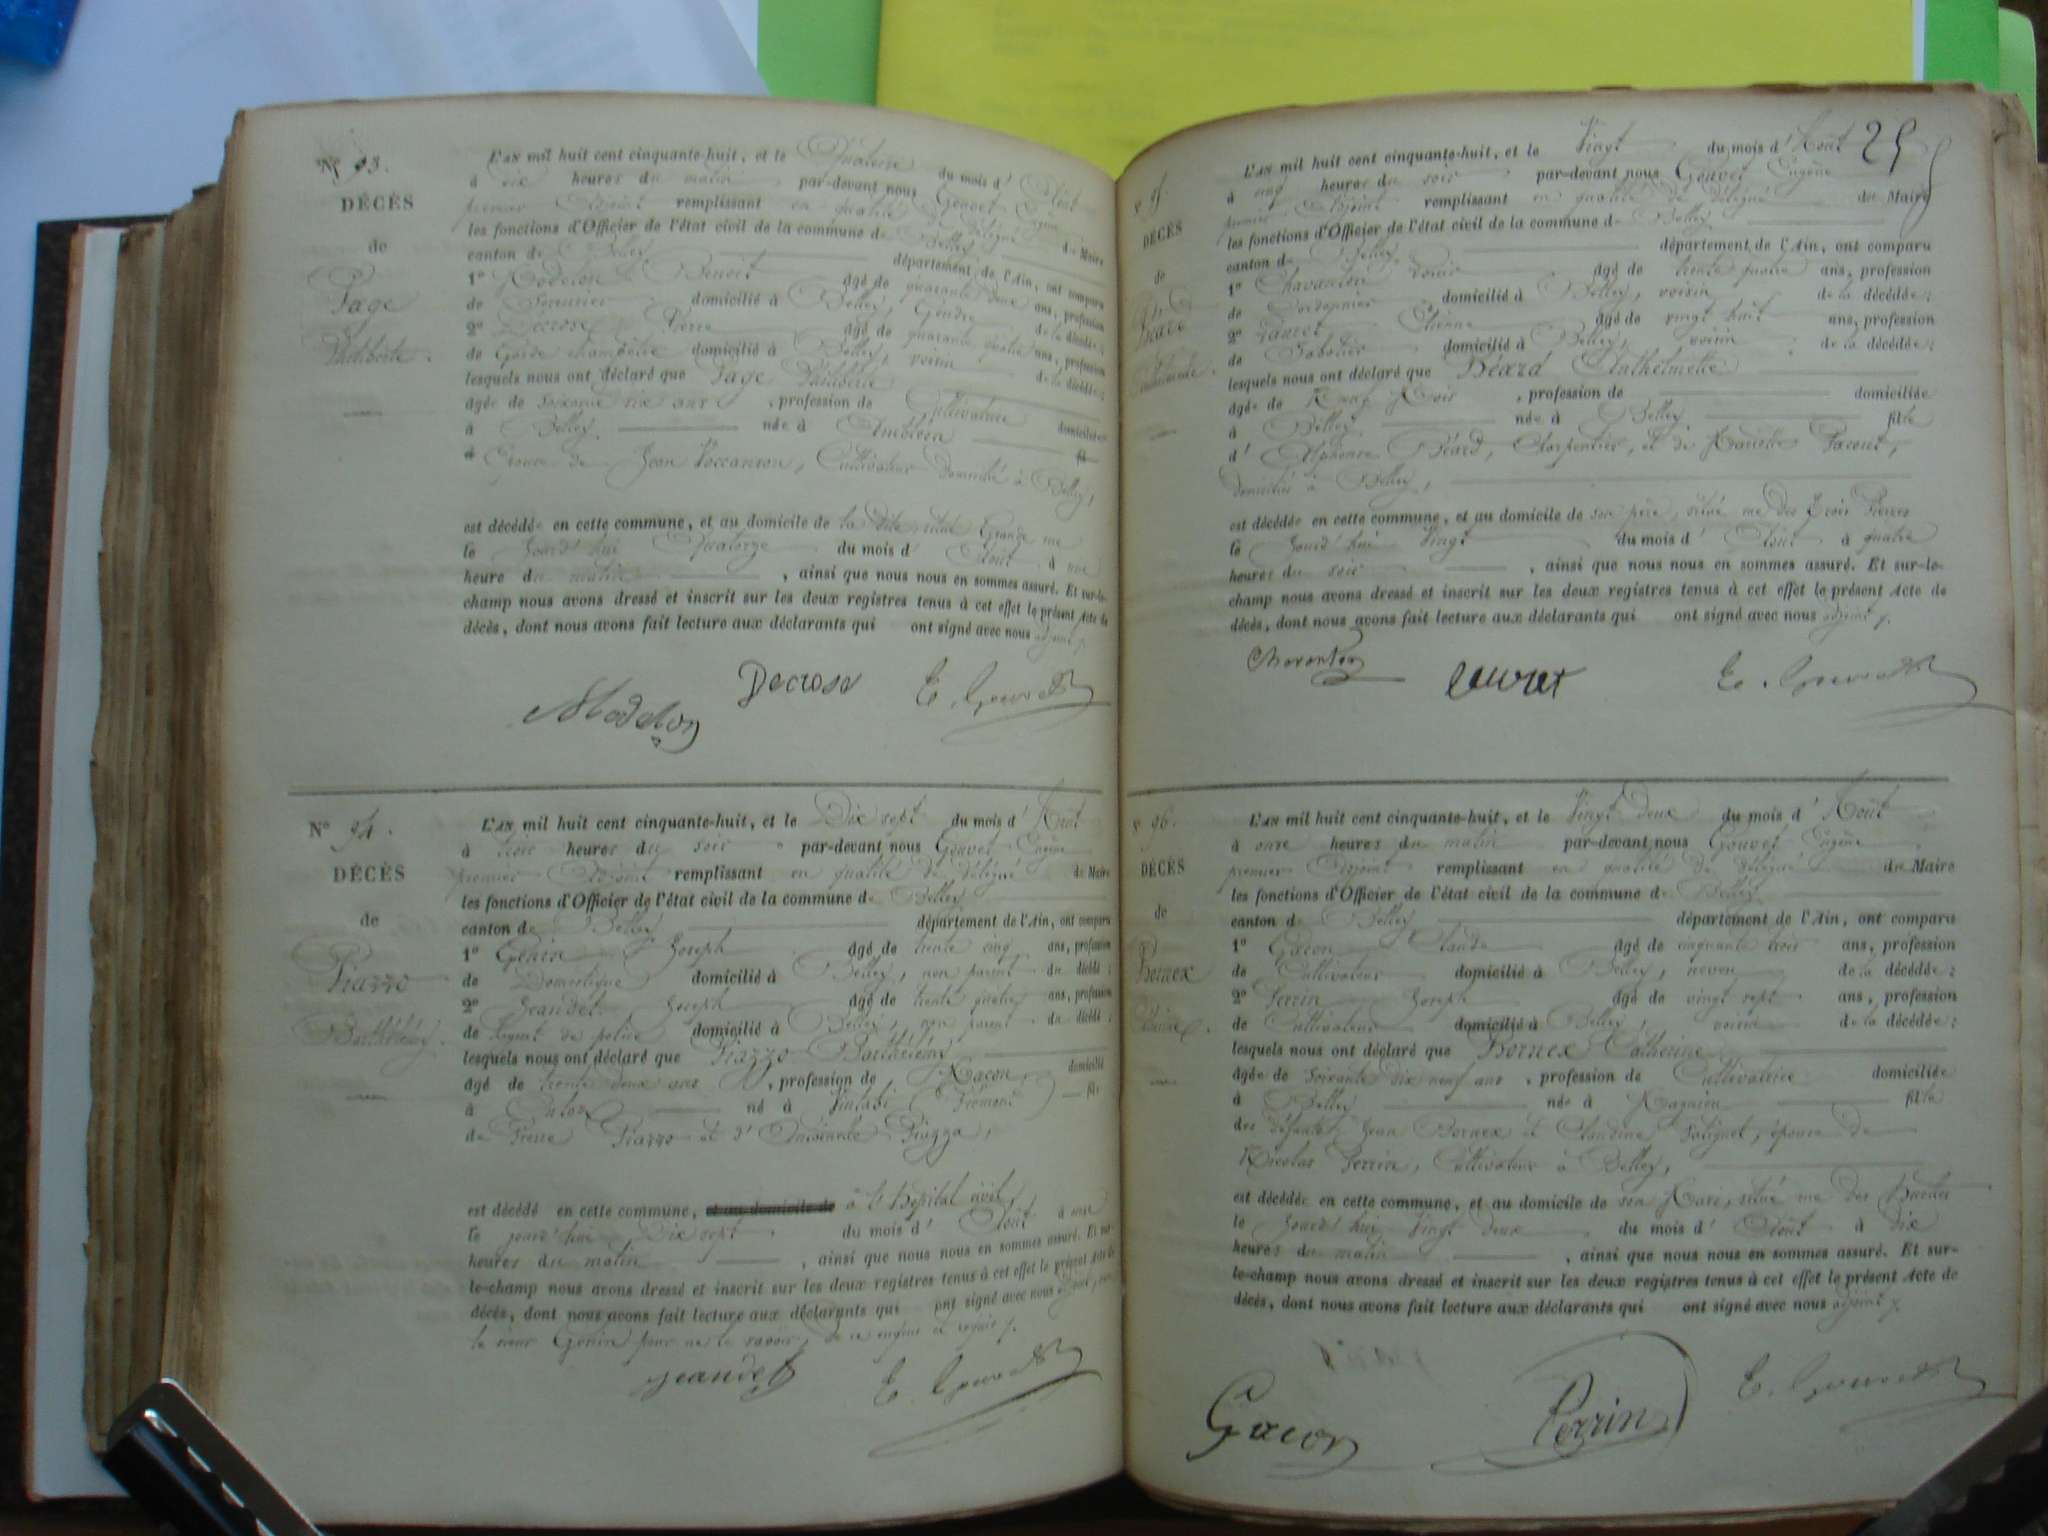 Nº 93.
DÉCÈS
de
Page
Philiberte.
L'AN mil huit cent cinquante-huit, et le Quatorze du mois d' Août
à dix heures du matin par-devant nous Gouvet Eugène
premier Adjoint remplissant en qualité de délégué du Maire
les fonctions d'Officier de l'état civil de la commune de Belley
canton de Belley département de l'Ain, ont comparu
1º Benoit âgé de quarante deux ans, profession
de domicilié à Belley, Gendre de la décédée;
2º Decrose Pierre âgé de quarante quatre ans, profession
de Garde champêtre domicilié à Belley, voisin de la décédée;
lesquels nous ont déclaré que Page Philiberte
âgée de soixante six ans, profession de Cultivatrice domiciliée
à Belley née à Ambléon
Épouse de Jean Cultivateur domicilié à Belley,
est décédée en cette commune, et au domicile de la dite, situé Grande rue
le Jourd'hui Quatorze du mois d' Août à une
heure du matin, ainsi que nous nous en sommes assuré. Et sur-le-
champ nous avons dressé et inscrit sur les deux registres tenus à cet effet le présent Acte de
décès, dont nous avons fait lecture aux déclarants qui ont signé avec nous adjoint
Decrose E. Gouvet
Nº 94.
DÉCÈS
de
Piazzo
Barthélémy.
L'AN mil huit cent cinquante-huit, et le Dix sept du mois d' Août
à trois heures du soir par-devant nous Gouvet Eugène
premier Adjoint remplissant en qualité de délégué du Maire
les fonctions d'Officier de l'état civil de la commune de Belley
canton de Belley département de l'Ain, ont comparu
1º Genin Joseph âgé de trente cinq ans, profession
de Domestique domicilié à Belley, non parent du décédé;
2º Jeandet Joseph âgé de trente quatre ans, profession
de Agent de police domicilié à Belley, non parent du décédé;
lesquels nous ont déclaré que Piazzo Barthélémi
âgé de trente deux ans, profession de Maçon domicilié
à Culoz né à (Piémont) fils
de Pierre Piazzo et d' Piazza,
est décédé en cette commune, et au domicile de à l'Hôpital civil,
le jourd'hui Dix sept du mois d' Août à onze
heures du matin, ainsi que nous nous en sommes assuré. Et sur-
le-champ nous avons dressé et inscrit sur les deux registres tenus à cet effet le présent Acte de
décès, dont nous avons fait lecture aux déclarants qui ont signé avec nous adjoint, non
le sieur Genin pour ne le savoir, de ce enquis et requis
Jeandet E. Gouvet
25
DÉCÈS
de
Béard
L'AN mil huit cent cinquante-huit, et le Vingt du mois d' Août
à cinq heures du soir par-devant nous Gouvet Eugène
premier Adjoint remplissant en qualité de délégué du Maire
les fonctions d'Officier de l'état civil de la commune de Belley
canton de Belley département de l'Ain, ont comparu
1º Chavanton Louis âgé de trente quatre ans, profession
de Cordonnier domicilié à Belley, voisin de la décédée;
2º Lauret Étienne âgé de vingt huit ans, profession
de Sabotier domicilié à Belley, voisin de la décédée;
lesquels nous ont déclaré que Béard Anthelmette
âgée de Neuf Mois, profession de domiciliée
à Belley née à Belley fille
d' Alphonse Béard, Charpentier, et de Mariette
domiciliés à Belley,
est décédée en cette commune, et au domicile de son père, situé rue des Trois Pierres
le Jourd'hui Vingt du mois d' Août à quatre
heures du soir, ainsi que nous nous en sommes assuré. Et sur-le-
champ nous avons dressé et inscrit sur les deux registres tenus à cet effet le présent Acte de
décès, dont nous avons fait lecture aux déclarants qui ont signé avec nous adjoint
Lauret E. Gouvet
96.
DÉCÈS
de
Bornex
L'AN mil huit cent cinquante-huit, et le Vingt deux du mois d' Août
à onze heures du matin par-devant nous Gouvet Eugène
premier Adjoint remplissant en qualité de délégué du Maire
les fonctions d'Officier de l'état civil de la commune de Belley
canton de Belley département de l'Ain, ont comparu
1º Gacon Claude âgé de cinquante trois ans, profession
de Cultivateur domicilié à Belley, neveu de la décédée;
2º Perrin Joseph âgé de vingt sept ans, profession
de Cultivateur domicilié à Belley, voisin de la décédée;
lesquels nous ont déclaré que Bornex Catherine
âgée de soixante dix neuf ans, profession de Cultivatrice domiciliée
à Belley née à Magnieu fille
des défunts Jean Bornex et Claudine épouse de
Nicolas Perrin, Cultivateur à Belley,
est décédée en cette commune, et au domicile de son Mari, situé rue des Barbes
le Jourd'hui Vingt deux du mois d' Août à dix
heures du matin, ainsi que nous nous en sommes assuré. Et sur-
le-champ nous avons dressé et inscrit sur les deux registres tenus à cet effet le présent Acte de
décès, dont nous avons fait lecture aux déclarants qui ont signé avec nous adjoint
Gacon Perrin E. Gouvet